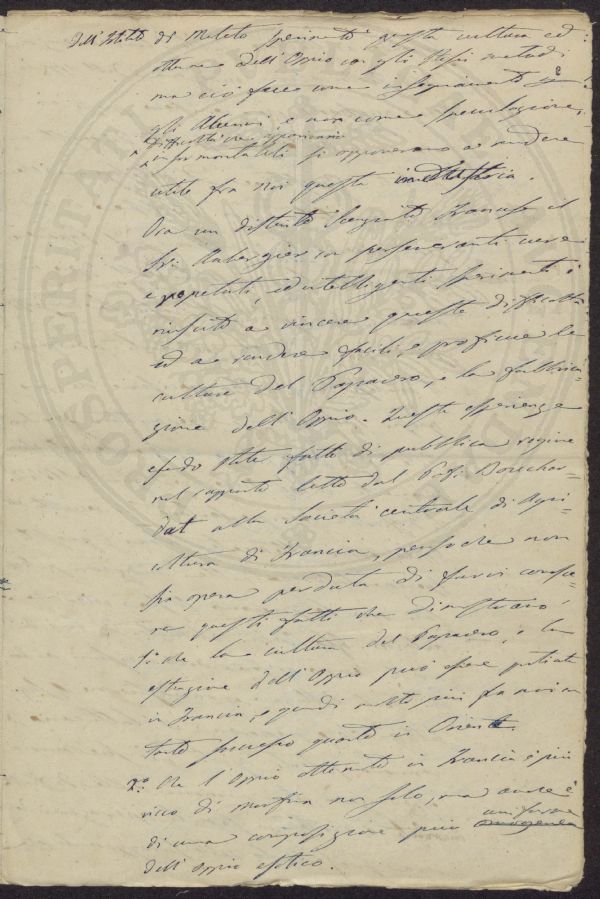 dell'Istituto di Meleto sperimentò questa cultura ed
ottenne dell'Oppio con gli stessi metodi
ma ciò fece come insegnamento
gli Alunni, e non come speculazione,
difficoltà che
insormontabili si opponevano a rendere
utile fra noi questa industria.
Ora un distinto Scienziato Francese il
Sr. Aubergier con perseveranti cure
e ripetuti, ed intelligenti sperimenti è
riuscito a vincere queste difficoltà
ed a rendere facili, e proficue la
cultura del Papavero, e la fabbrica-
zione dell'Oppio. Queste esperienze
essendo state fatte di pubblica ragione
nel rapporto letto dal Prof. Bouchar-
dat alla Società centrale di Agri-
cultura di Francia, penso che non
sia opera perduta di farvi conosce-
re questi fatti che dimostrano
1.o che la cultura del Papavero, e la
estrazione dell'Oppio può essere praticata
in Francia, e quindi molto più fra noi con
tanto successo quanto in Oriente
2.o Che l'Oppio ottenuto in Francia è più
ricco di morfina non solo, ma anche è
uniforme
di una composizione più omogenea
dell'Oppio esotico.